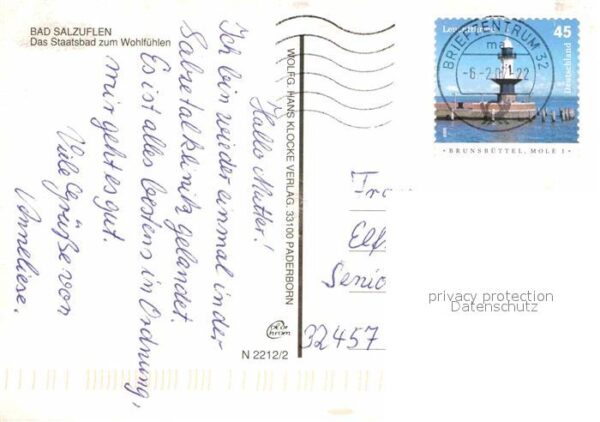 BAD SALZUFLEN
Das Staatsbad zum Wohlfühlen
Hallo Mutter!
Ich bin wieder einmal in der
Salzetalklinik gelandet.
Es ist alles bestens in Ordnung,
mir geht es gut.
Viele Grüße von
Anneliese.
WOLFG. HANS KLOCKE VERLAG, 33100 PADERBORN
N 2212/2
BRIEFZENTRUM 32
ma
45
Deutschland
BRUNSBÜTTEL, MOLE 1
Elf
Senio
32457
privacy protection
Datenschutz